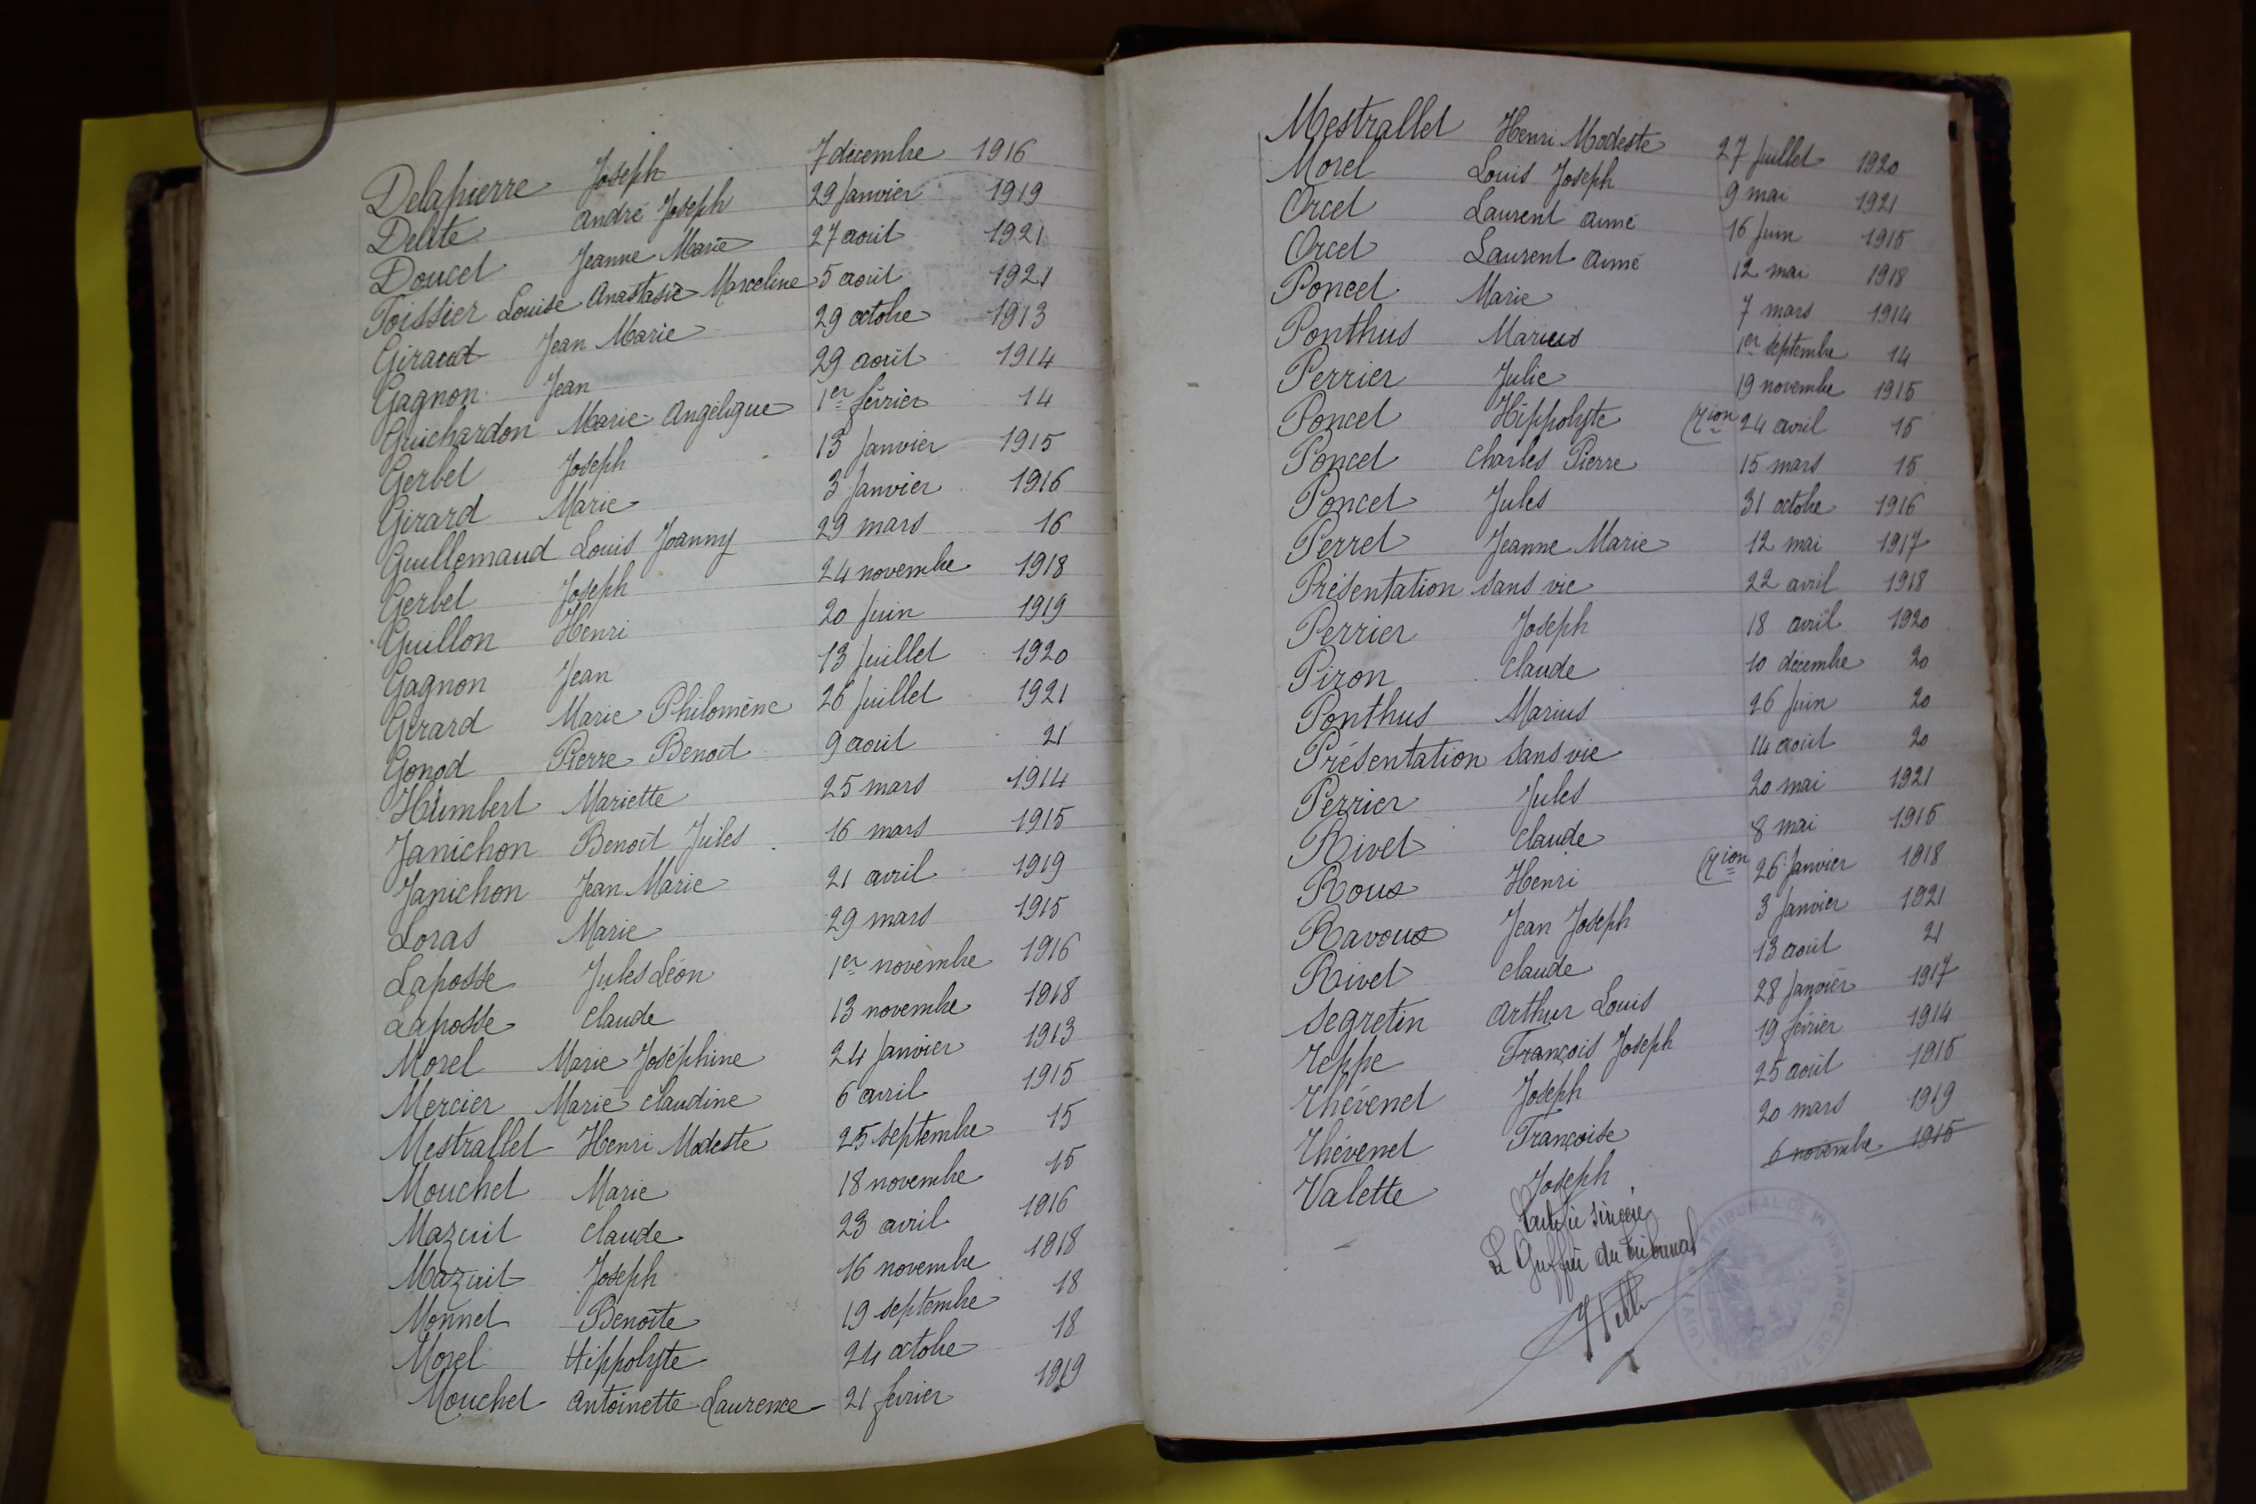 Delapierre Joseph 7 décembre 1916
Delite André Joseph 29 Janvier 1919
Doucet Jeanne Marie 27 août 1921
Foissier Louise Anastasie Marceline 5 août 1921
Giraud Jean Marie 29 octobre 1913
Gagnon Jean 29 août 1914
Guichardon Marie Angélique 1er février 14
Gerbet Joseph 13 Janvier 1915
Girard Marie 3 Janvier 1916
Guillemaud Louis Joanny 29 mars 16
Gerbet Joseph 24 novembre 1918
Guillon Henri 20 Juin 1919
Gagnon Jean 13 Juillet 1920
Gerard Marie Philomène 26 Juillet 1921
Gonod Pierre Benoit 9 août 21
Humbert Mariette 25 mars 1914
Janichon Benoit Jules 16 mars 1915
Janichon Jean Marie 21 avril 1919
Loras Marie 29 mars 1915
Laposse Jules Léon 1er novembre 1916
Laposse Claude 13 novembre 1918
Morel Marie Joséphine 24 Janvier 1913
Mercier Marie Claudine 6 avril 1915
Mestrallet Henri Modeste 25 septembre 15
Mouchet Marie 18 novembre 15
Mazuit Claude 23 avril 1916
Mazuit Joseph 16 novembre 1918
Monnet Benoîte 19 septembre 18
Morel Hippolyte 24 octobre 18
Mouchet Antoinette Laurence 21 février 1919
Mestrallet Henri Modeste 27 Juillet 1920
Morel Louis Joseph 9 mai 1921
Orcet Laurent Aimé 16 Juin 1915
Orcet Laurent Aimé 12 mai 1918
Poncet Marie 7 mars 1914
Ponthus Marius 1er septembre 14
Perrier Julie 19 novembre 1915
Poncet Hippolyte (Tion 24 avril 15
Poncet Charles Pierre 15 mars 15
Poncet Jules 31 octobre 1916
Perret Jeanne Marie 12 mai 1917
Présentation sans vie 22 avril 1918
Perrier Joseph 18 avril 1920
Piron Claude 10 décembre 20
Ponthus Marius 26 Juin 20
Présentation sans vie 14 août 20
Perrier Jules 20 mai 1921
Rivet Claude 8 mai 1915
Roux Henri (Tion 26 Janvier 1918
Ravoux Jean Joseph 3 Janvier 1921
Rivet Claude 13 août 21
Segretin Arthur Louis 28 Janvier 1917
Teppe François Joseph 19 février 1914
Thévenet Joseph 25 août 1915
Thévenet Françoise 20 mars 1919
Valette Joseph 6 novembre 1915
Certifié sincère
Le Greffier du tribunal
TRIBUNAL DE 1re INSTANCE DE